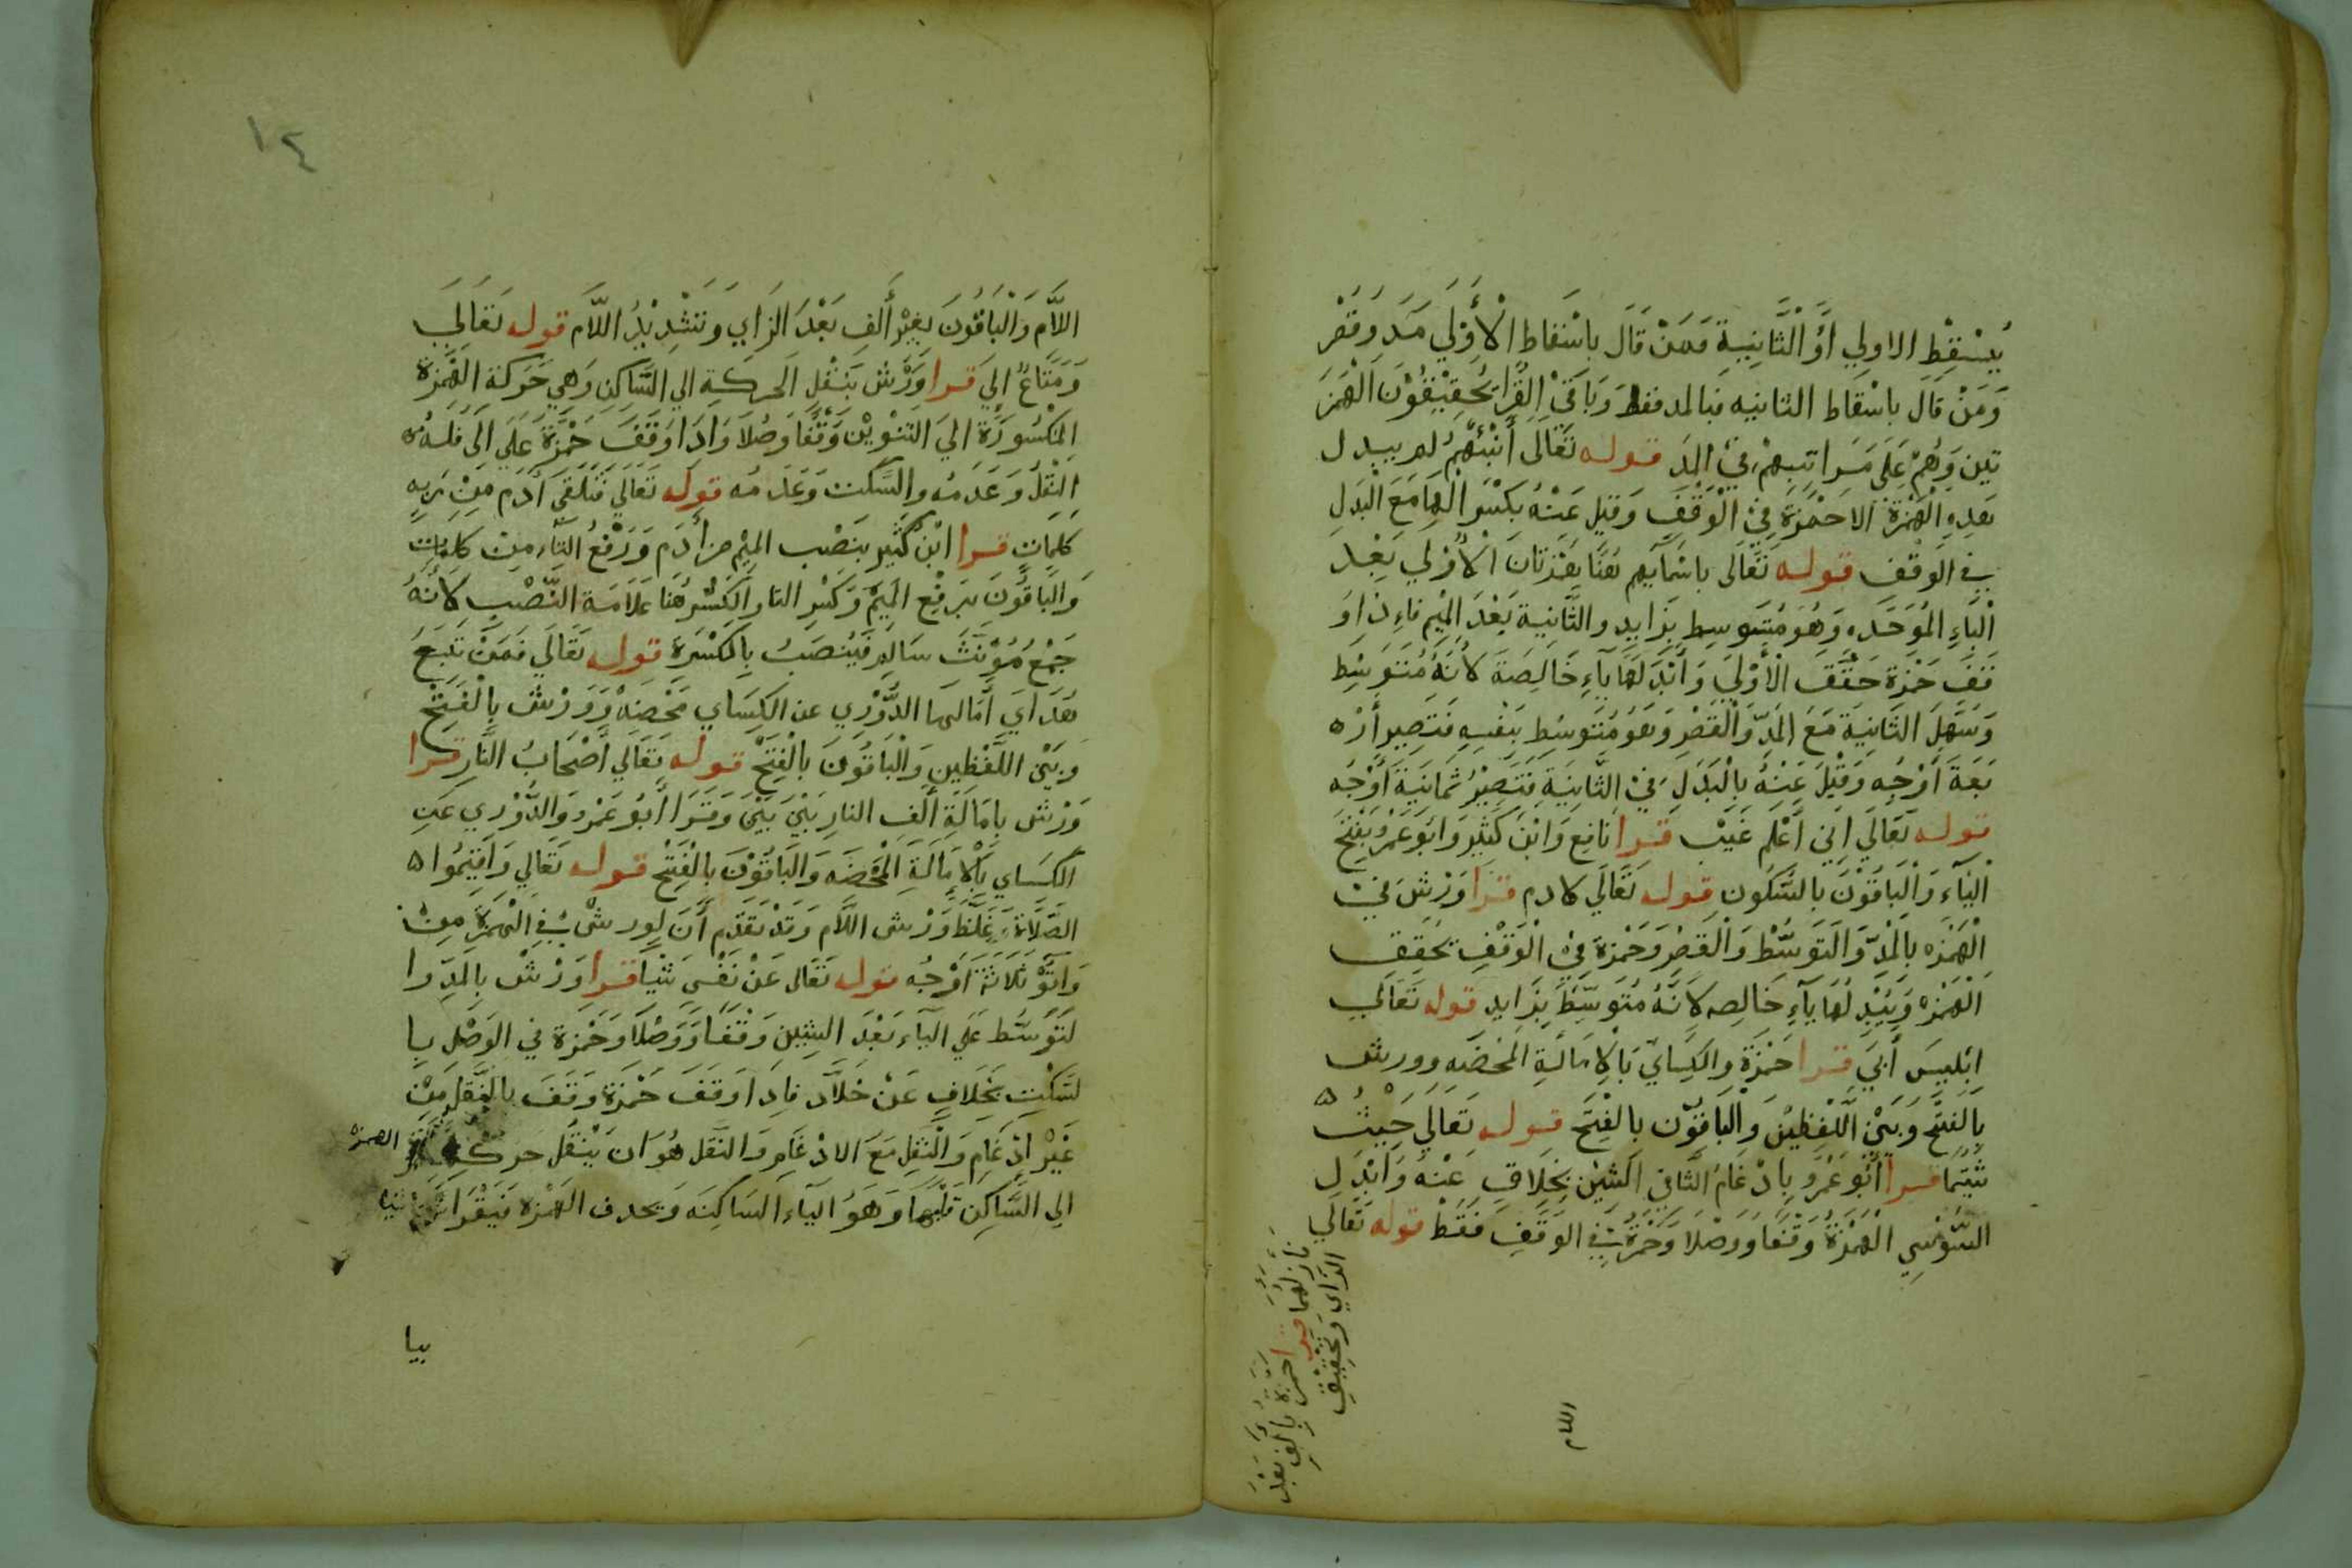 يُسْقِطِ الاولي أوِ الْثَّانِيةِ فَمَنْ قَالَ باسْقاط الْأُوْلَي مَدَ وَقَصْر
وَمَنْ قَالَ باسْقَاط الثانيه فبالمد فقط وَبَاقي الْقُرا يُحَقِيْقُوْنَ الْهَمْزَ
تين وَهُمْ عَلَى مَرَاتبهِمْ في المدِ قوله تَعَالَى أَنْبئهُمْ لم يبدل
هَذِهِ الْهَمْزَةَ الا حَمْزَة فِيْ الْوَقْفِ وَقيل عَنْهُ بكَسْر الْهَا مَعَ الْبَدَلِ
في الوَقْفِ قوله تَعَالَى باسْمَآيهِم هُنَا هَمْزَتَانَ الْأُوْلي بَعْد
الْبَاءِ الْمُوَحَّدَه وَهُوَ مُتَوسِط بزَايدِ والثَّانِية بَعْدَ الْمِيْم فاءِذا وَ
قَفَ حَمْزَة حَقَّقَ الْأوْلَي وَأَبْدَلَهَا يآءِ خَالِصَة لأنَّهُ مُتَوَسِط
وَسَهِّلَ الثَانِيَةَ مَعَ المَدّ وَالْقَصْرِ وَهُوَ مُتَوسِطِ بنَفْسِهِ فتَصِير أَرْ
بَعَةَ أوْجُه وَقْيلَ عَنْهُ بالْبَدَلِ فيْ الثَّانِيَةِ فتَصِيْرُ ثمانيَةَ أَوْجُه
قوله تَعَالَي اني أَعْلَم غَيْبَ قرا نَافِع وَابْنَ كَثِيْر وَابُو عَمْرو بفَتْح
الْيَآء وَالْبَاقُوْنَ بالسَّكُون قوله تَعَالَي لادم قرا وَرْش فيْ
الْهَمْزَه بالْمَدّ وَالَتَوَسُّط وَالْقَصْر وَحَمْزة فِيْ الْوَقْفِ يحَقِق
الْهَمْزه وَيُبْدِلُهَا يَآءِ خَالِصه لأنَّهُ مُتَوسِّط بزَايد قوله تَعَالَي
ابْلِيسَ أَبَى قرا حَمْزَةَ والكِسَايّ بَالِامَالَةِ الْمَحْضَهِ وورش
بِالفَتْحِ وَبَيْنَ اللَّفْظِيْنِ وَالْبَاقُوْن بالْفَتْحِ قوله تَعَالَي حَيْثُ
شِئْتُمَا قرا أَبُو عَمْرو بِادْغَام الثَّاني الشين بخِلَافِ عَنْهُ وَأبْدَلِ
السُّوْسِي الْهَمْزَةُ وَقْفًا وَوَصْلَا وَحَمْزَةُ في الوَقْفِ فَقَطْ قوله تَعَالَي
فأزلهُمَا قرا حَمْزَة بالفٍ بَعْدَ
الزَّاي وَتَخْفِيْفِ
اللام
١٤
اللَّام وَالْبَاقُوْنَ بغَيْر أَلفِ بَعْدَ الزَاي وَتَشْدِيْدُ اللَّام قوله تَعَالَي
وَمَتَاعٌ الِيَ قرا وَرْش بنَقْلِ الَحركَةِ الي السَّاكِن وَهِي حَرَكَة الهَمْزَة
الْمَكْسُورَة الِيَ التنوِيْنِ وَقْفًا وصْلاً وَاذا وَقَفَ حَمْزَةْ عَلَي الَى فَلَهُ
النَقْلُ وَعَدَمُه والسَّكت وَعَدَمُه قوله تَعَالَي فَتَلَقَّى أَدَم مِنْ رَبِه
كَلِمَاتٍ قرا ابْنُ كَثِير بنَصْب المِيْم من أَدَم وَرَفْعُ التَّآء مِنْ كلمَاتِ
وَالَبَاقُونَ برَفْع المَيمْ وَكَسْر التا والكَسْرُ هُنَا عَلَامَة النَّصْبِ لأَنَّهُ
جَمْعُ مُؤَنَثُ سَالِم فَيُنصَبُ بِالْكَسْرَةِ قوله تَعَالَي فَمَنْ تَبِعَ
هُدَايَ أَمَالهَا الدُّوْرِي عن الكِسَاي مَحْضَهْ وَوَرْش بالْفَتْح
وَبَيْنَ اللَّفْظِينِ وَالْبَاقُوْنَ بالْفَتْح قوله تَعَالَي أَصْحَابُ النَّارِ قرا
وَرْش بِامَالَةِ أَلفِ النارِ بَيْنَ بَيْنَ وَقَرَا أَبُو عَمْرو وَالدُّوْرِي عَن
الكسَاي بَالْاِمَالَةِ الْمَحْضَه وَالبَاقُوْنَ بِالْفَتْح قوله تَعَالَي وَأقِيْمُوا
الصَّلَاة غَلَّظ وَرْش اللَّام وَقَدْ تَقَدَّم أَنَ لورش في الْهَمْزَة مِنْ
وَاتَوْ ثَلَاثَةَ اَوْجُه قوله تَعَالَى عَنْ نَفْس شَيْيًا قرا وَرْش بالْمَدِ وا
لتَوَسُّط عَلَي اليآء بَعْدَ الشِين وَقْفًا وَوَصْلًا وَحَمْزة في الوَصْلِ با
لسَّكْتِ بخَلَافٍ عَنْ خَلَّاد فاِذَا وَقَفَ حَمْزَة وَقَفَ بالنَّقْلِ مِنْ
غَيْر ادْغَامٍ وَالْنَقْلِ مَعَ الادْغَامِ وَالنَقل هُوَ ان يَنْقُل حركَة الهمزه
الِى السَّاكِن قَبْلَهَا وَهَوُ اليآء السَاكِنَه وَيحدف الهَمْزه فيَقْرَا شيا
بيا